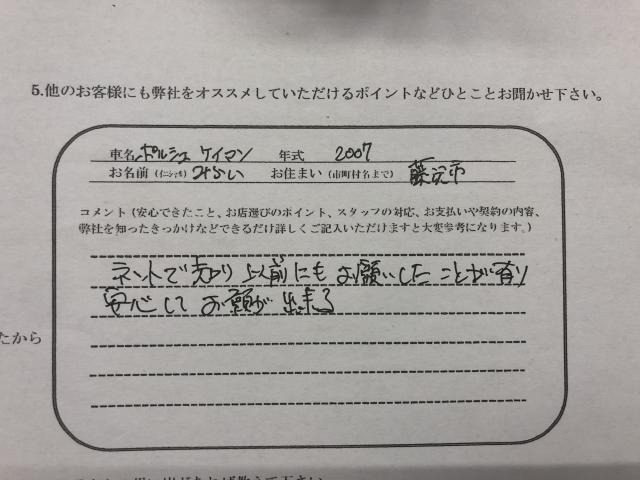 5.他のお客様にも弊社をオススメしていただけるポイントなどひとことお聞かせ下さい。
車名 ポルシェ ケイマン 年式 2007
お名前(イニシャルも) みらい お住まい(市町村名まで) 藤沢市
コメント(安心できたこと、お店選びのポイント、スタッフの対応、お支払いや契約の内容、
弊社を知ったきっかけなどできるだけ詳しくご記入いただけますと大変参考になります。)
ネットで知り 以前にもお願いしたことが有り
安心して お願が出来る
たから